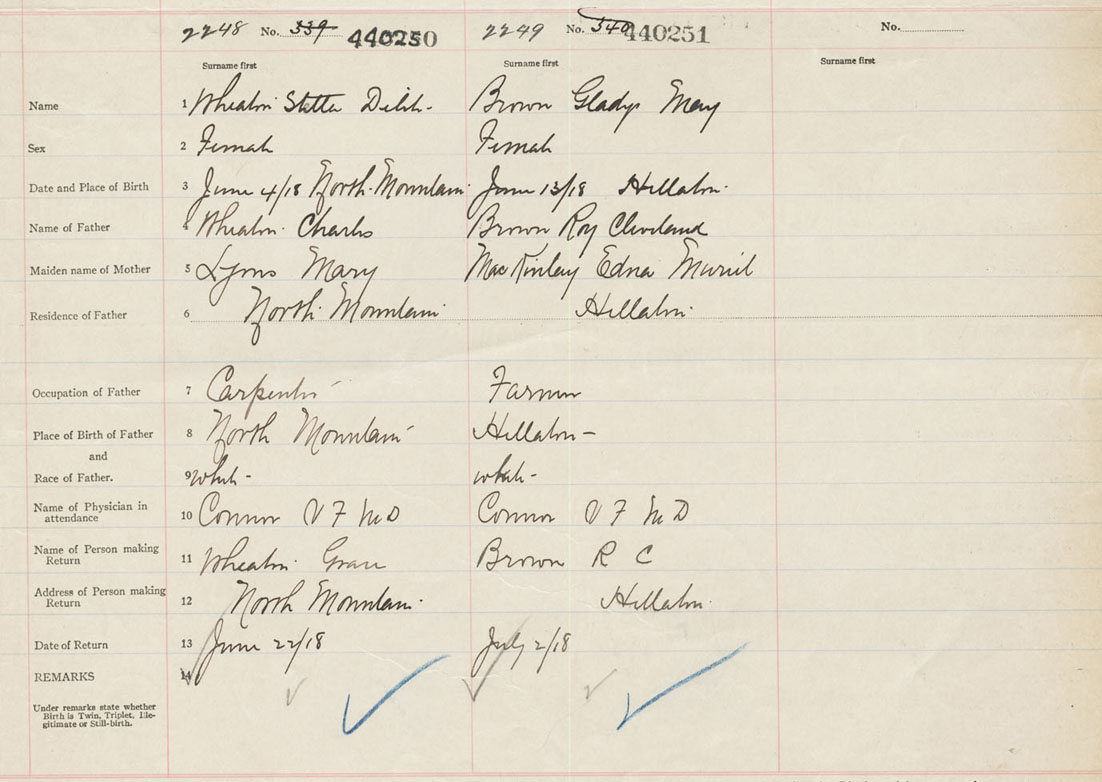 2248 No. 339 440250 2249 No. 340 440251 No.
Surname first Surname first Surname first
Name 1 Wheaton Stella Brown Gladys Mary
Sex 2 Female Female
Date and Place of Birth 3 June 4/18 North Mountain June 13/18 Hallaton
Name of Father 4 Wheaton Charles Brown Roy Cleveland
Maiden name of Mother 5 Lyons Mary MacKinlay Edna Muriel
Residence of Father 6 North Mountain
Occupation of Father 7 Carpenter Farmer
Place of Birth of Father 8 North Mountain
and
Race of Father. 9 white - white -
Name of Physician in
attendance 10 Connor V F M D Connor V F M D
Name of Person making
Return 11 Wheaton Grace Brown R C
Address of Person making
Return 12 North Mountain
Date of Return 13 June 22/18 July 2/18
REMARKS 14
Under remarks state whether
Birth is Twin, Triplet, Ille-
gitimate or Still-birth.